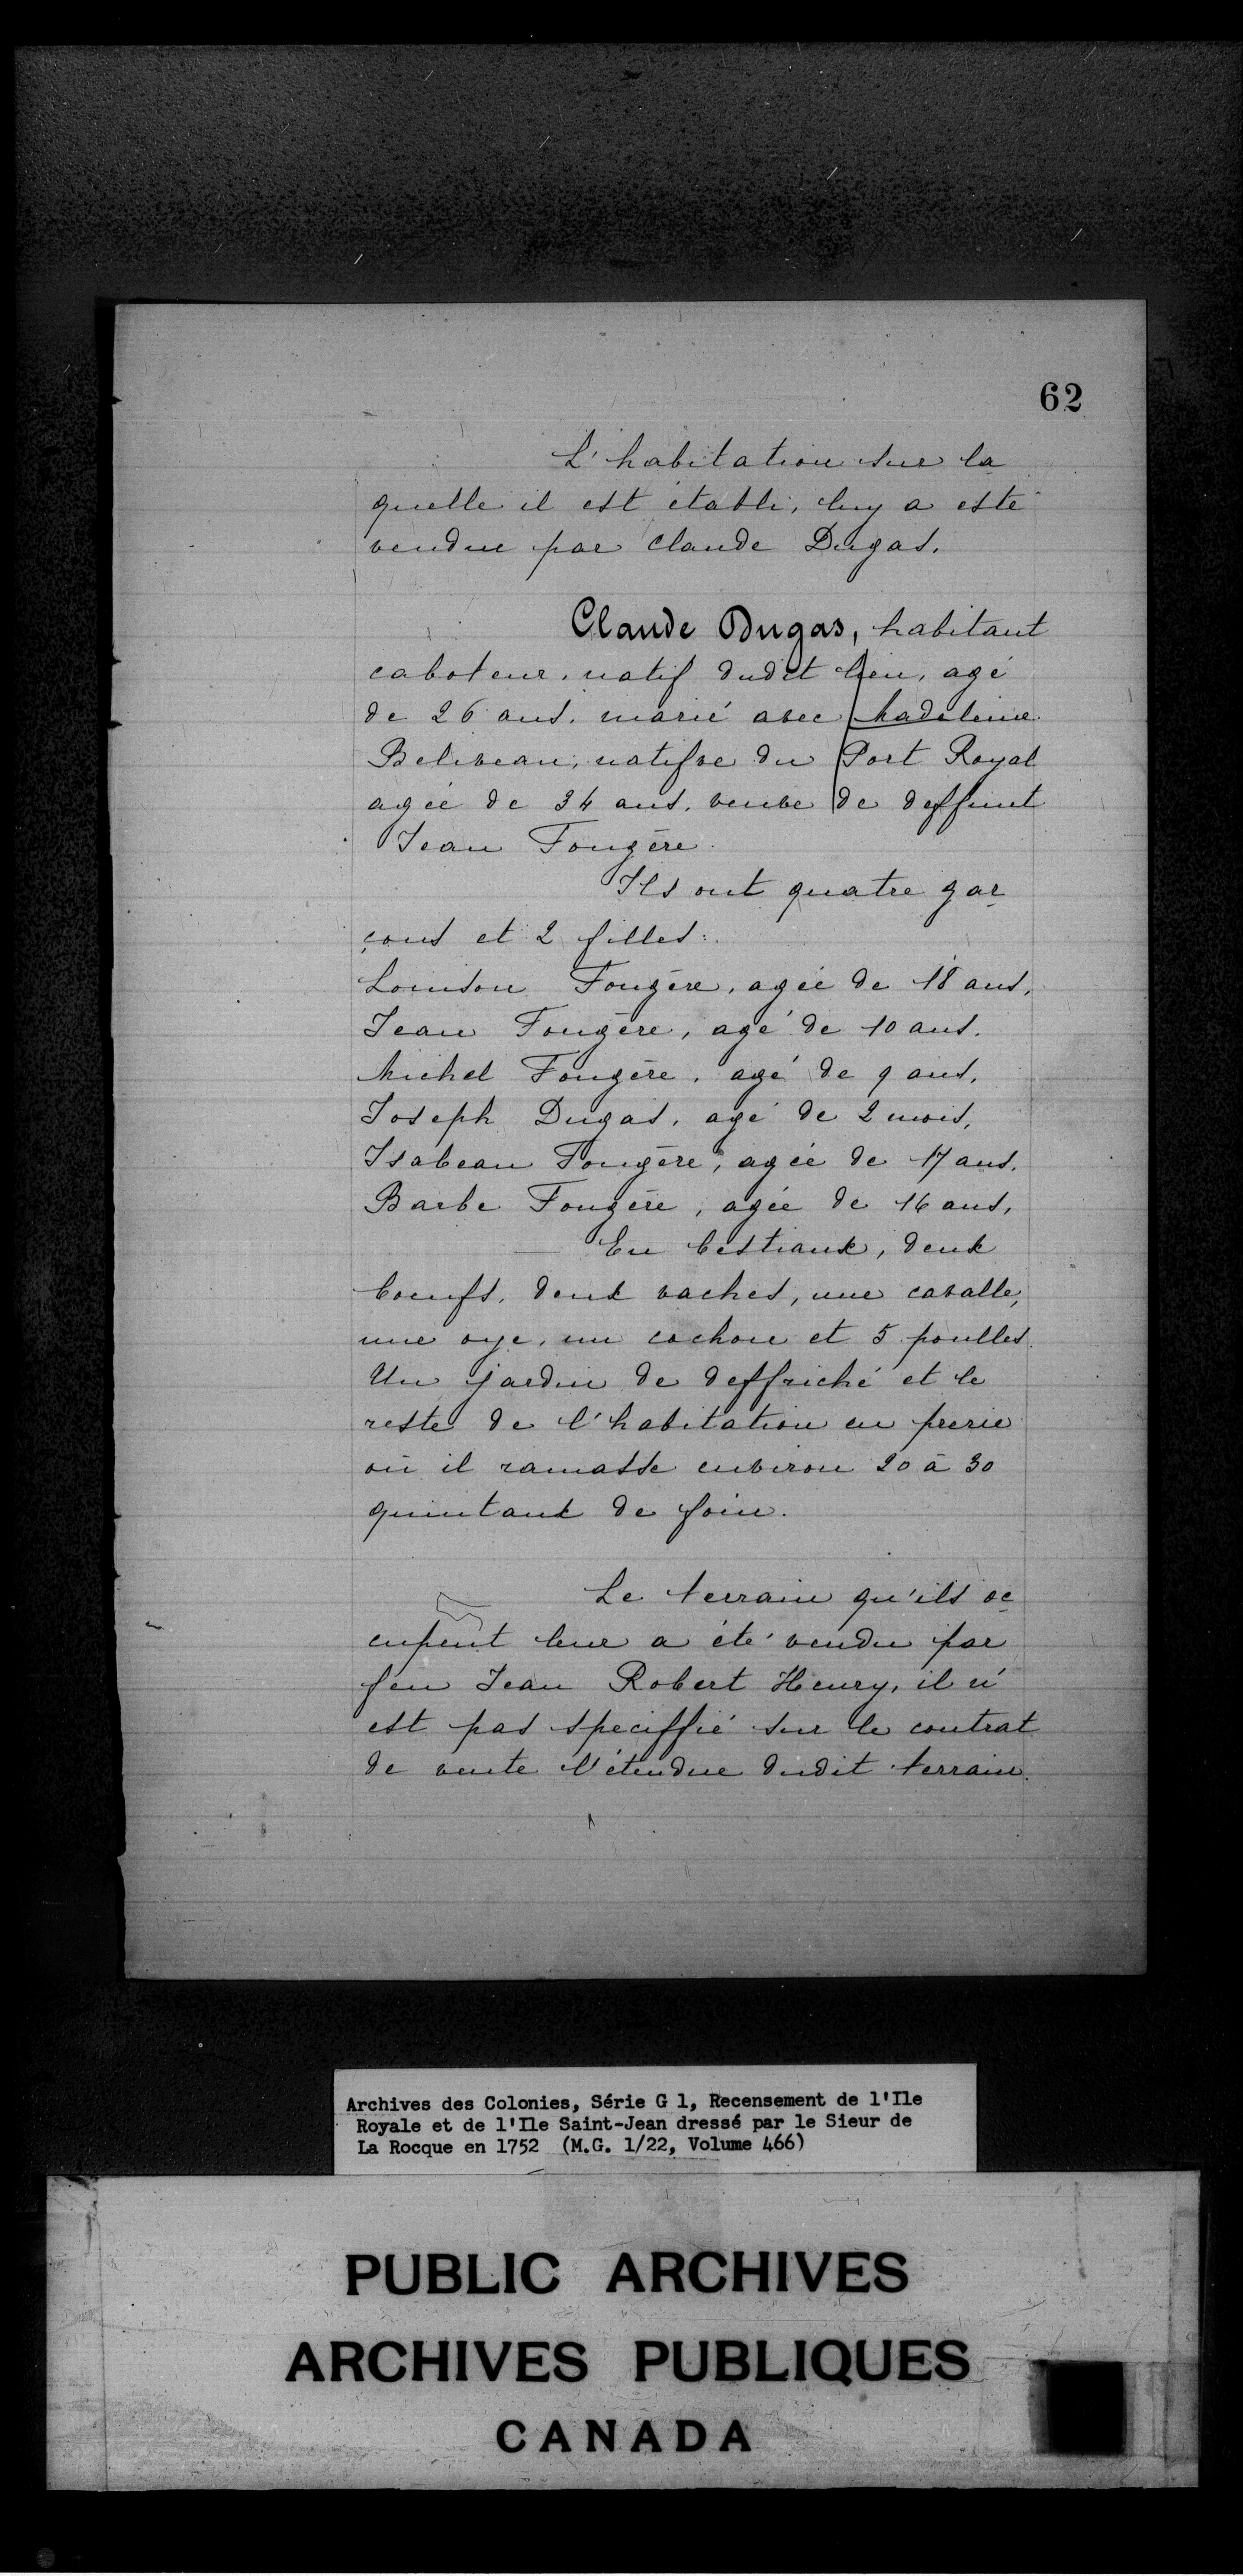 62
L'habitation sur la
quelle il est établi, luy a esté
vendue par Claude Dugas.
Claude Dugas, habitant
caboteur, natif dudit lieu, agé
de 26 ans, marié avec Madeleine
Beliveau, natifve du Port Royal
agée de 34 ans, veuve de deffunt
Jean Fougère.
Ils ont quatre gar
çons et 2 filles:
Louison Fougère, agée de 18 ans,
Jean Fougère, agé de 10 ans.
Michel Fougère, agé de 9 ans,
Joseph Dugas, agé de 2 mois,
Isabeau Fougère, agée de 17 ans.
Barbe Fougère, agée de 16 ans,
En bestiaux, deux
boeufs, deux vaches, une cavalle,
une oye, un cochon et 5 poulles.
Un jardin de deffriché et le
reste de l'habitation en prerie
où il ramasse environ 20 à 30
quintaux de foin.
Le terrain qu'ils oc
cupent leur a été vendu par
feu Jean Robert Henry, il n'
est pas speciffié sur le contrat
de vente l'étendue dudit terrain.
Archives des Colonies, Série G 1, Recensement de l'Ile
Royale et de l'Ile Saint-Jean dressé par le Sieur de
La Rocque en 1752 (M.G. 1/22, Volume 466)
PUBLIC ARCHIVES
ARCHIVES PUBLIQUES
CANADA